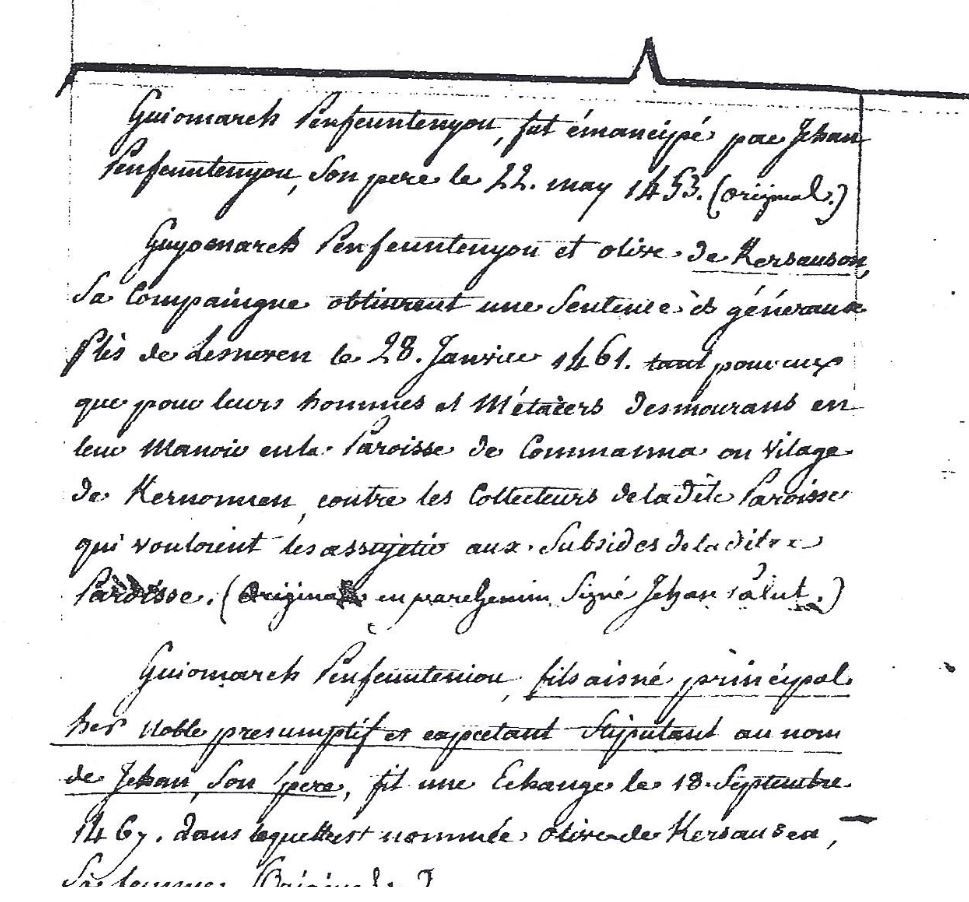 Guiomarch Penfeuntenyou, fut émancipé par Jehan
Penfeuntenyou, Son pere le 22. may 1453. (original.)
Guyomarch Penfeuntenyou et olive de Kersauson,
Sa Compaingne obtinrent une Sentence ès généraux
Plès de Lesneven le 28. Janvier 1461. tant pour eux
que pour leurs hommes et Métaiers desmourans en
leur Manoir en la Paroisse de Commanna ou Vilage
de Kernonnen, contre les Collecteurs de ladite Paroisse
qui vouloient les assujetir aux Subsides de la dite
Paroisse. (Original en parchemin Signé Jehan salut.)
Guiomarch Penfeunteniou, fils aisné principal
her noble presumptif et expectant Stipulant au nom
de Jehan, Son pere, fit une Echange le 18 Septembre
1467. dans lequel est nommée olive de Kersauson,
Sa femme. (Original.)